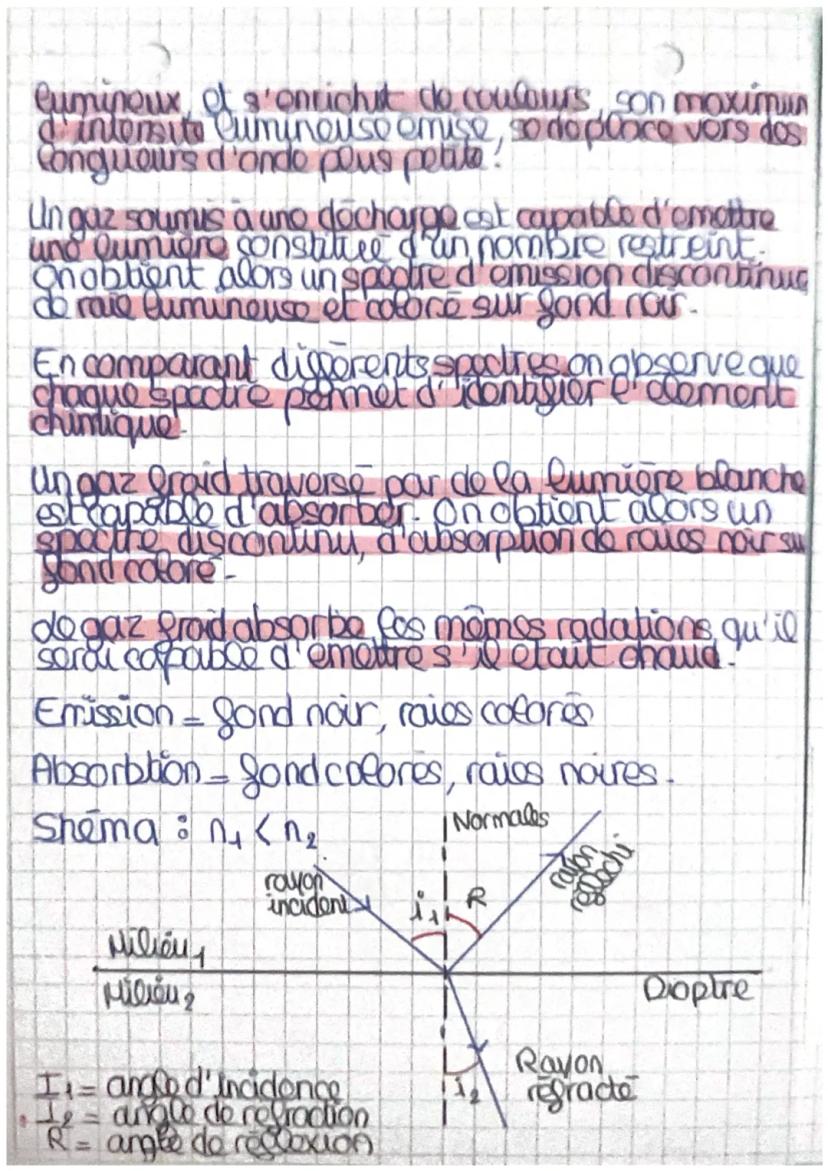 lumineux, et s'enrichit de couleurs, son maximum
d'intensité lumineuse émise, se déplace vers des
longueurs d'onde plus petite.
Un gaz soumis à une décharge est capable d'émettre
une lumière constituée d'un nombre restreint.
On obtient alors un spectre d'émission discontinue
de raie lumineuse et coloré sur fond noir.
En comparant différents spectres on observe que
chaque spectre permet d'identifier l'élement
chimique.
Un gaz froid traversé par de la lumière blanche
est capable d'absorber. On obtient alors un
spectre discontinu, d'absorption de raies noir su
fond coloré.
Le gaz froid absorbe les mêmes radations, qu'il
serai capable d'émettre s'il était chaud.
Emission = fond noir, raies colorés
Absorbtion = fond colorés, raies noires.
Shéma : n₁ < n₂
Normales
rayon
incident
i₁
R
rayon
réflechi
Milieu₁
Milieu₂
Dioptre
Rayon
réfracté
i₂
I₁ = angle d'incidence
I₂ = angle de refraction
R = angle de réflexion